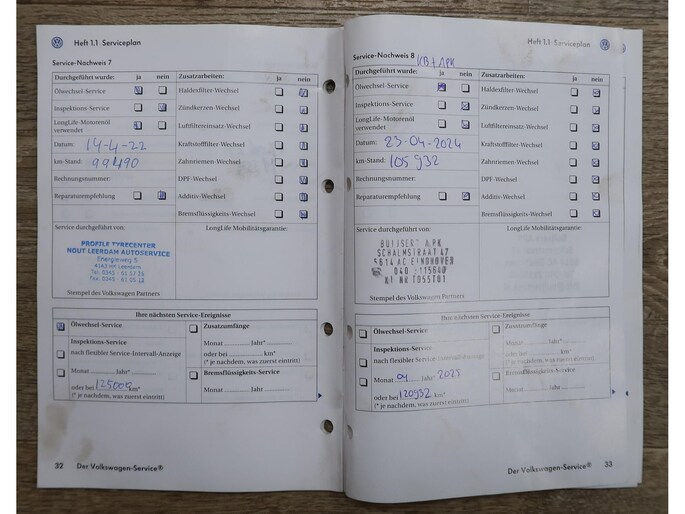 Heft 1.1 Serviceplan
Service-Nachweis 7
Durchgeführt wurde: ja nein Zusatzarbeiten: ja nein
Ölwechsel-Service Haldexfilter-Wechsel
Inspektions-Service Zündkerzen-Wechsel
LongLife-Motorenöl verwendet Luftfiltereinsatz-Wechsel
Datum: 14-4-22 Kraftstofffilter-Wechsel
km-Stand: 99490 Zahnriemen-Wechsel
Rechnungsnummer: DPF-Wechsel
Reparaturempfehlung Additiv-Wechsel
Bremsflüssigkeits-Wechsel
Service durchgeführt von: LongLife Mobilitätsgarantie:
PROFILE TYRECENTER
NOUT LEERDAM AUTOSERVICE
Energieweg 5
4143 HK Leerdam
Stempel des Volkswagen Partners
Ihre nächsten Service-Ereignisse
Ölwechsel-Service Zusatzumfänge
Inspektions-Service Monat Jahr*
nach flexibler Service-Intervall-Anzeige oder bei km*
(* je nachdem, was zuerst eintritt)
Monat Jahr* Bremsflüssigkeits-Service
oder bei km* Monat Jahr
(* je nachdem, was zuerst eintritt)
32 Der Volkswagen-Service®
Heft 1.1 Serviceplan
Service-Nachweis 8 KB+APK
Durchgeführt wurde: ja nein Zusatzarbeiten: ja nein
Ölwechsel-Service Haldexfilter-Wechsel
Inspektions-Service Zündkerzen-Wechsel
LongLife-Motorenöl verwendet Luftfiltereinsatz-Wechsel
Datum: 23-04-2024 Kraftstofffilter-Wechsel
km-Stand: 105932 Zahnriemen-Wechsel
Rechnungsnummer: DPF-Wechsel
Reparaturempfehlung Additiv-Wechsel
Bremsflüssigkeits-Wechsel
Service durchgeführt von: LongLife Mobilitätsgarantie:
APK
SCHALMSTRAAT 47
5614 AC EINDHOVEN
Stempel des Volkswagen Partners
Ihre nächsten Service-Ereignisse
Ölwechsel-Service Zusatzumfänge
Inspektions-Service Monat Jahr*
nach flexibler Service-Intervall-Anzeige oder bei km*
(* je nachdem, was zuerst eintritt)
Monat 04 Jahr* 2025 Bremsflüssigkeits-Service
oder bei 120932 km* Monat Jahr
(* je nachdem, was zuerst eintritt)
Der Volkswagen-Service® 33